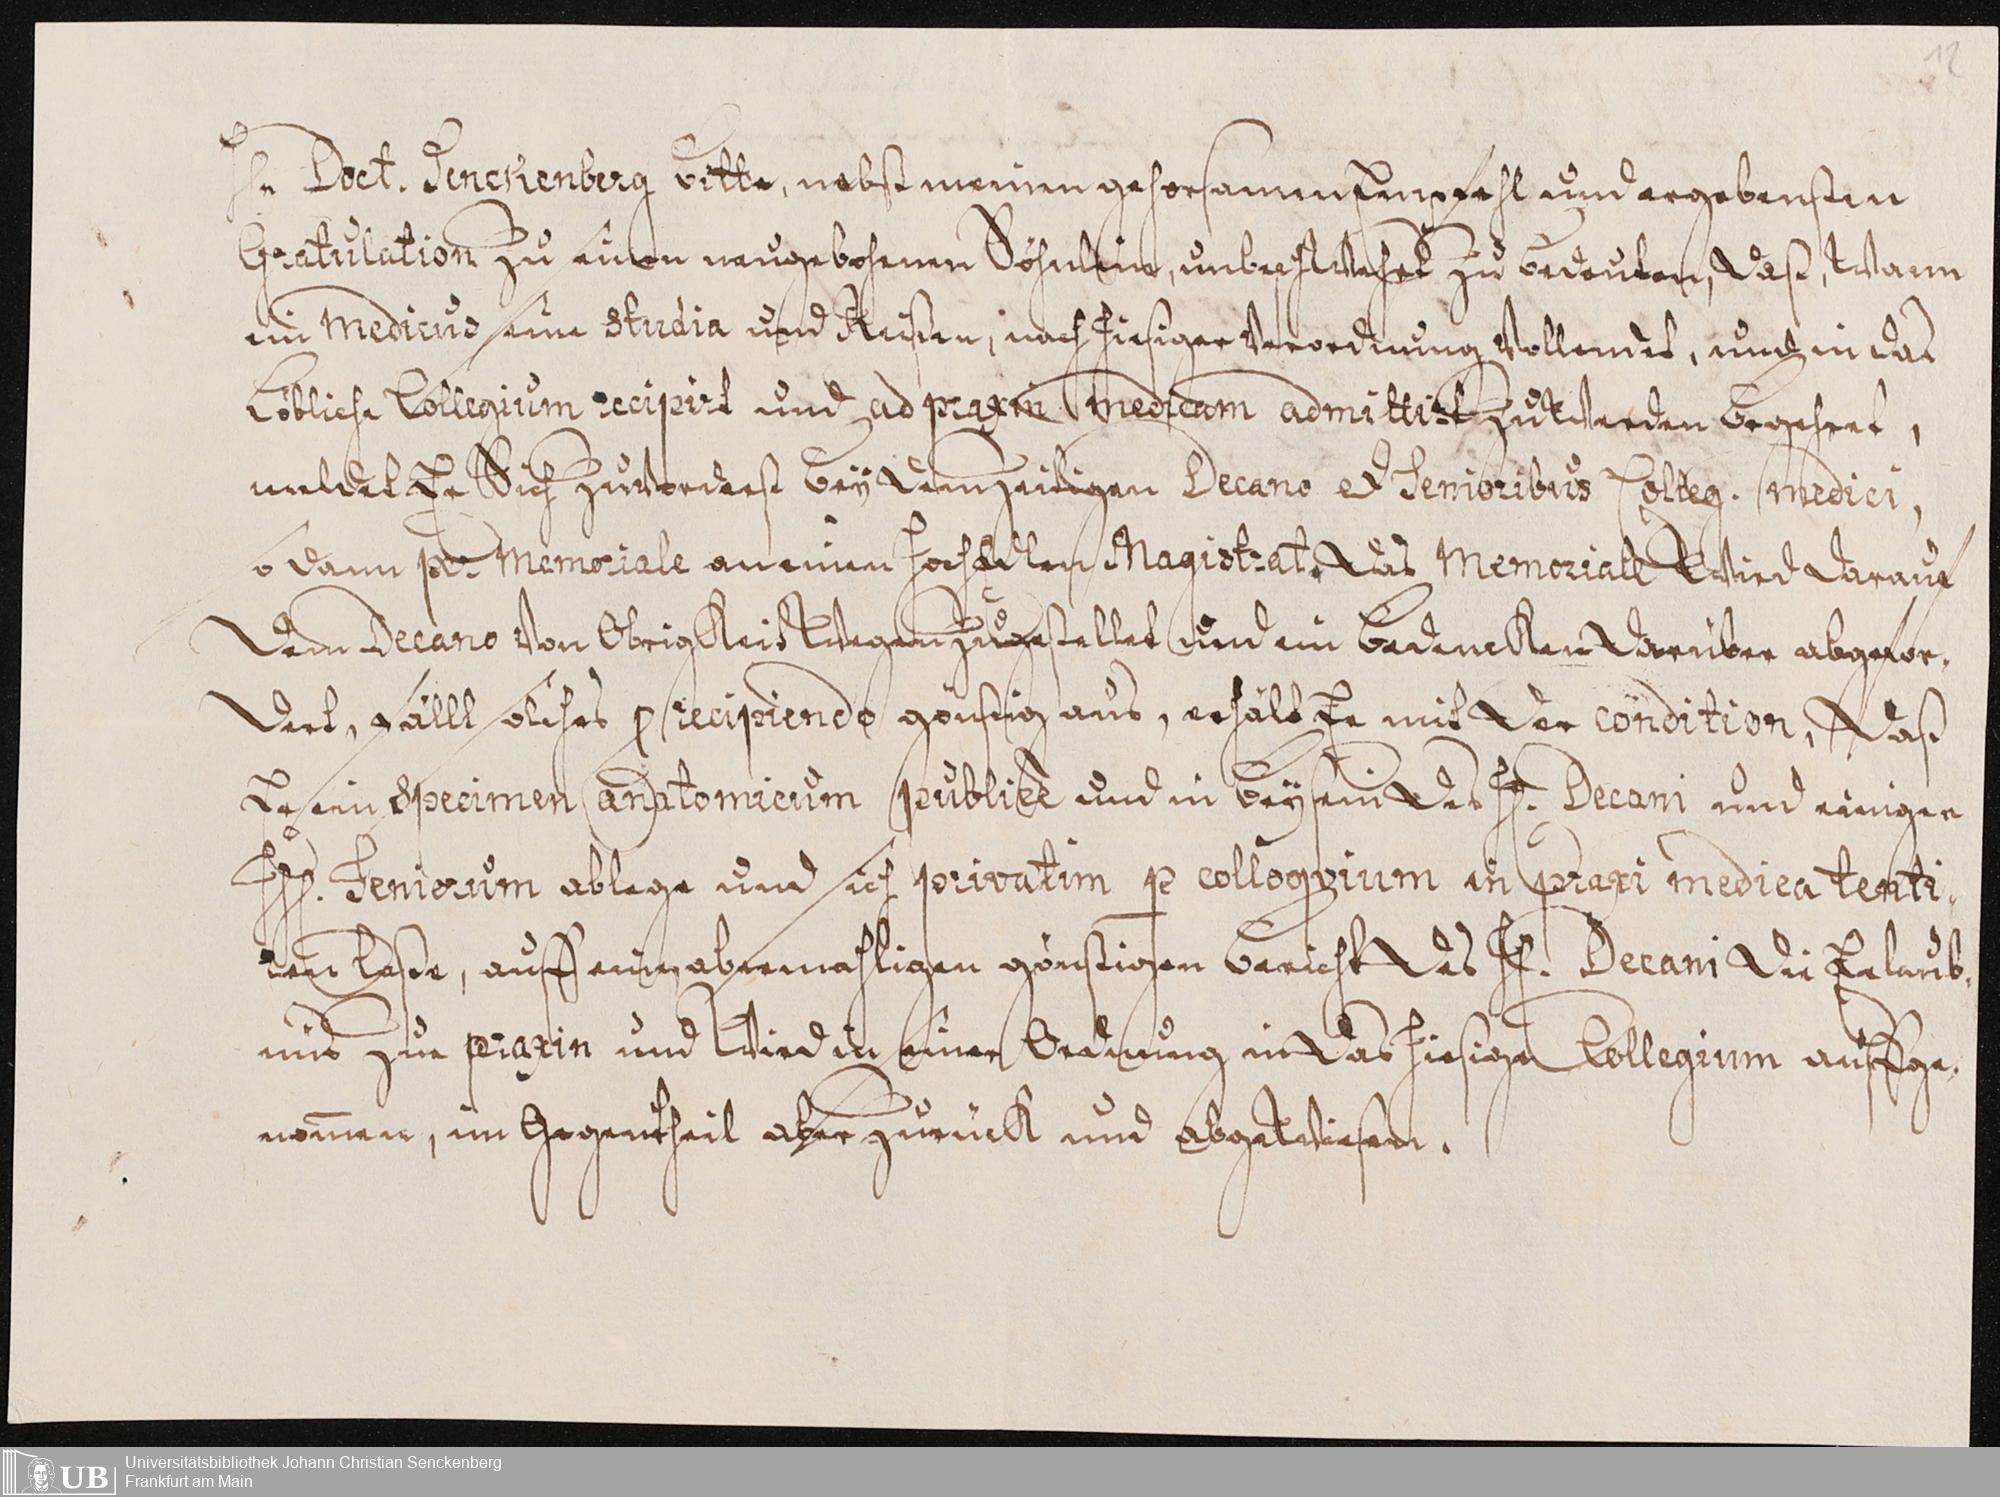 12
Hn Doct. Senckenberg bitte, nebst meinen gehorsamen Empfehl und ergebensten
Gratulation zu seinem neugebohrnen Söhnlein, unbeschwehrt zu bedeuten, daß, wann
ein Medicus seine Studia und Reisen, nach hiesiger Verordnung vollendet, und in das
Löbliche Collegium recipirt und ad praxin medicam admittirt zu werden begehret,
meldet Er Sich zuvorderst bey dem zeitigen Decano et Senioribus Colleg. medici,
sodann per Memoriale an einen HochEdlen Magistrat. Das Memoriale wird darauf
dem Decano von Obrigkeit wegen zugestellet und ein Bedencken darüber abgefor-
dert, fällt solches p recipiendo günstig aus, erhält Er mit der condition, daß
Er ein Specimen anatomicum publice und in Beysein des H. Decani und einiger
HH. Seniorum ablege und sich privatim p colloqvium in praxi medica tenti-
ren laße, auff einen abermahligen günstigen Bericht des H. Decani die Erlaub-
nüs zur praxin und wird in seiner Ordnung in das hiesige Collegium auffge-
nommen, im Gegentheil aber zurück und abgewiesen.
UB
Universitätsbibliothek Johann Christian Senckenberg
Frankfurt am Main